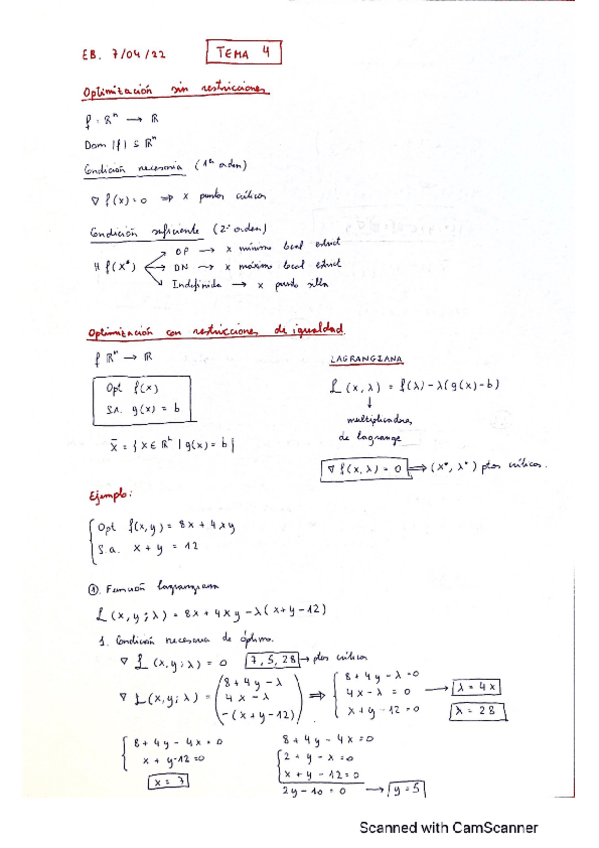 EB. 7/04/22 TEMA 4
Optimización sin restricciones
f: ℝⁿ → ℝ
Dom (f) ⊆ ℝⁿ
Condición necesaria (1er orden)
∇ f(x) = 0 ⇒ x puntos críticos
Condición suficiente (2º orden)
H f(x*) → DP → x mínimo local estrict
→ DN → x máximo local estrict
→ Indefinida → x punto silla
Optimización con restricciones de igualdad
f ℝⁿ → ℝ
Opt f(x)
S.A. g(x) = b
X̄ = { x ∈ ℝⁿ | g(x) = b |
LAGRANGIANA
L (x, λ) = f(λ) - λ(g(x) - b)
↓
multiplicadores
de lagrange
∇ f(x, λ) = 0 ⇒ (x*, λ*) ptos críticos.
Ejemplo:
Opt f(x,y) = 8x + 4xy
S.a. x + y = 12
①. Función lagrangiana
L (x, y; λ) = 8x + 4xy - λ(x+y-12)
1. Condición necesaria de óptimo.
∇ L (x, y; λ) = 0 7, 5, 28 → ptos críticos
∇ L(x, y; λ) = (8 + 4y - λ
4x - λ
-(x+y-12)) ⇒ { 8 + 4y - λ = 0
4x - λ = 0
x + y - 12 = 0
→ λ = 4x
λ = 28
8 + 4y - 4x = 0
x + y - 12 = 0
x = 7
8 + 4y - 4x = 0
2 + y - x = 0
x + y - 12 = 0
2y - 10 = 0 → y = 5
Scanned with CamScanner